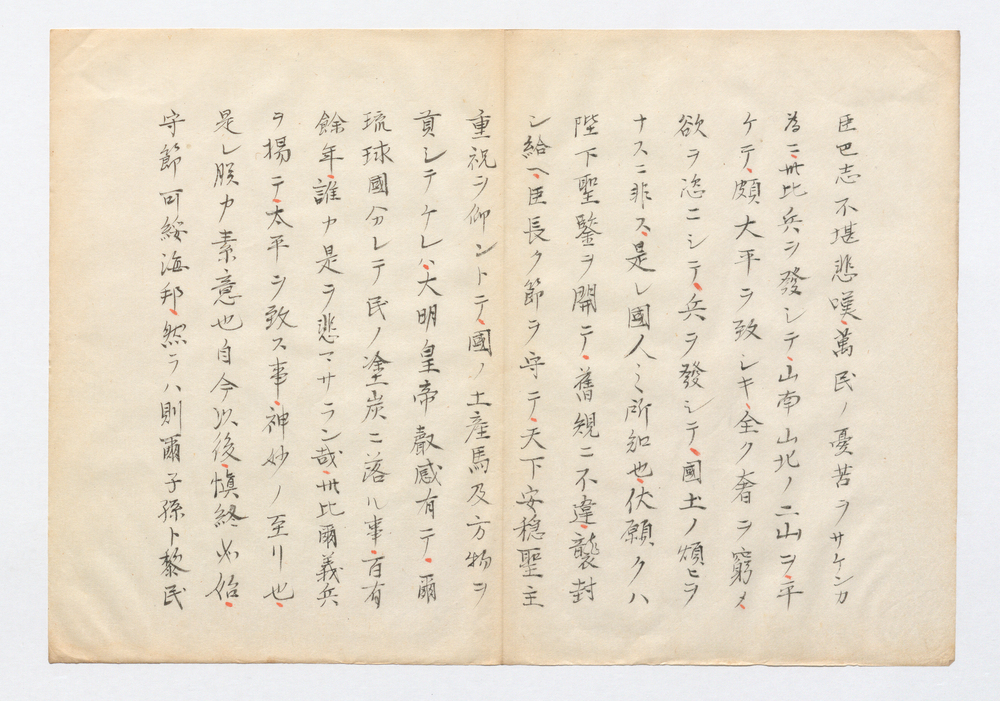 臣巴志不堪悲嘆萬民ノ憂苦ヲサケンカ
為ニ卅比兵ヲ發シテ山南山北ノ二山ヲ平
ケテ頗大平ヲ致シキ全ク奢ヲ窮メ
欲ヲ恣ニシテ兵ヲ發シテ國土ノ煩ヒヲ
ナスニ非ス是レ國人ミ所知也伏願クハ
陛下聖鑒ヲ開テ舊規ニ不違襲封
シ給ヘ臣長ク節ヲ守テ天下安穏聖主
重祝ヲ仰ントテ國ノ土産馬及方物ヲ
貢シテケレハ大明皇帝叡感有テ爾
琉球國分レテ民ノ塗炭ニ落ル事百有
餘年誰カ是ヲ悲マサラン哉卅比爾義兵
ヲ揚テ太平ヲ致ス事神妙ノ至リ也
是レ朕カ素意也自今以後慎終必始
守節可綏海邦然ラハ則爾子孫ト黎民